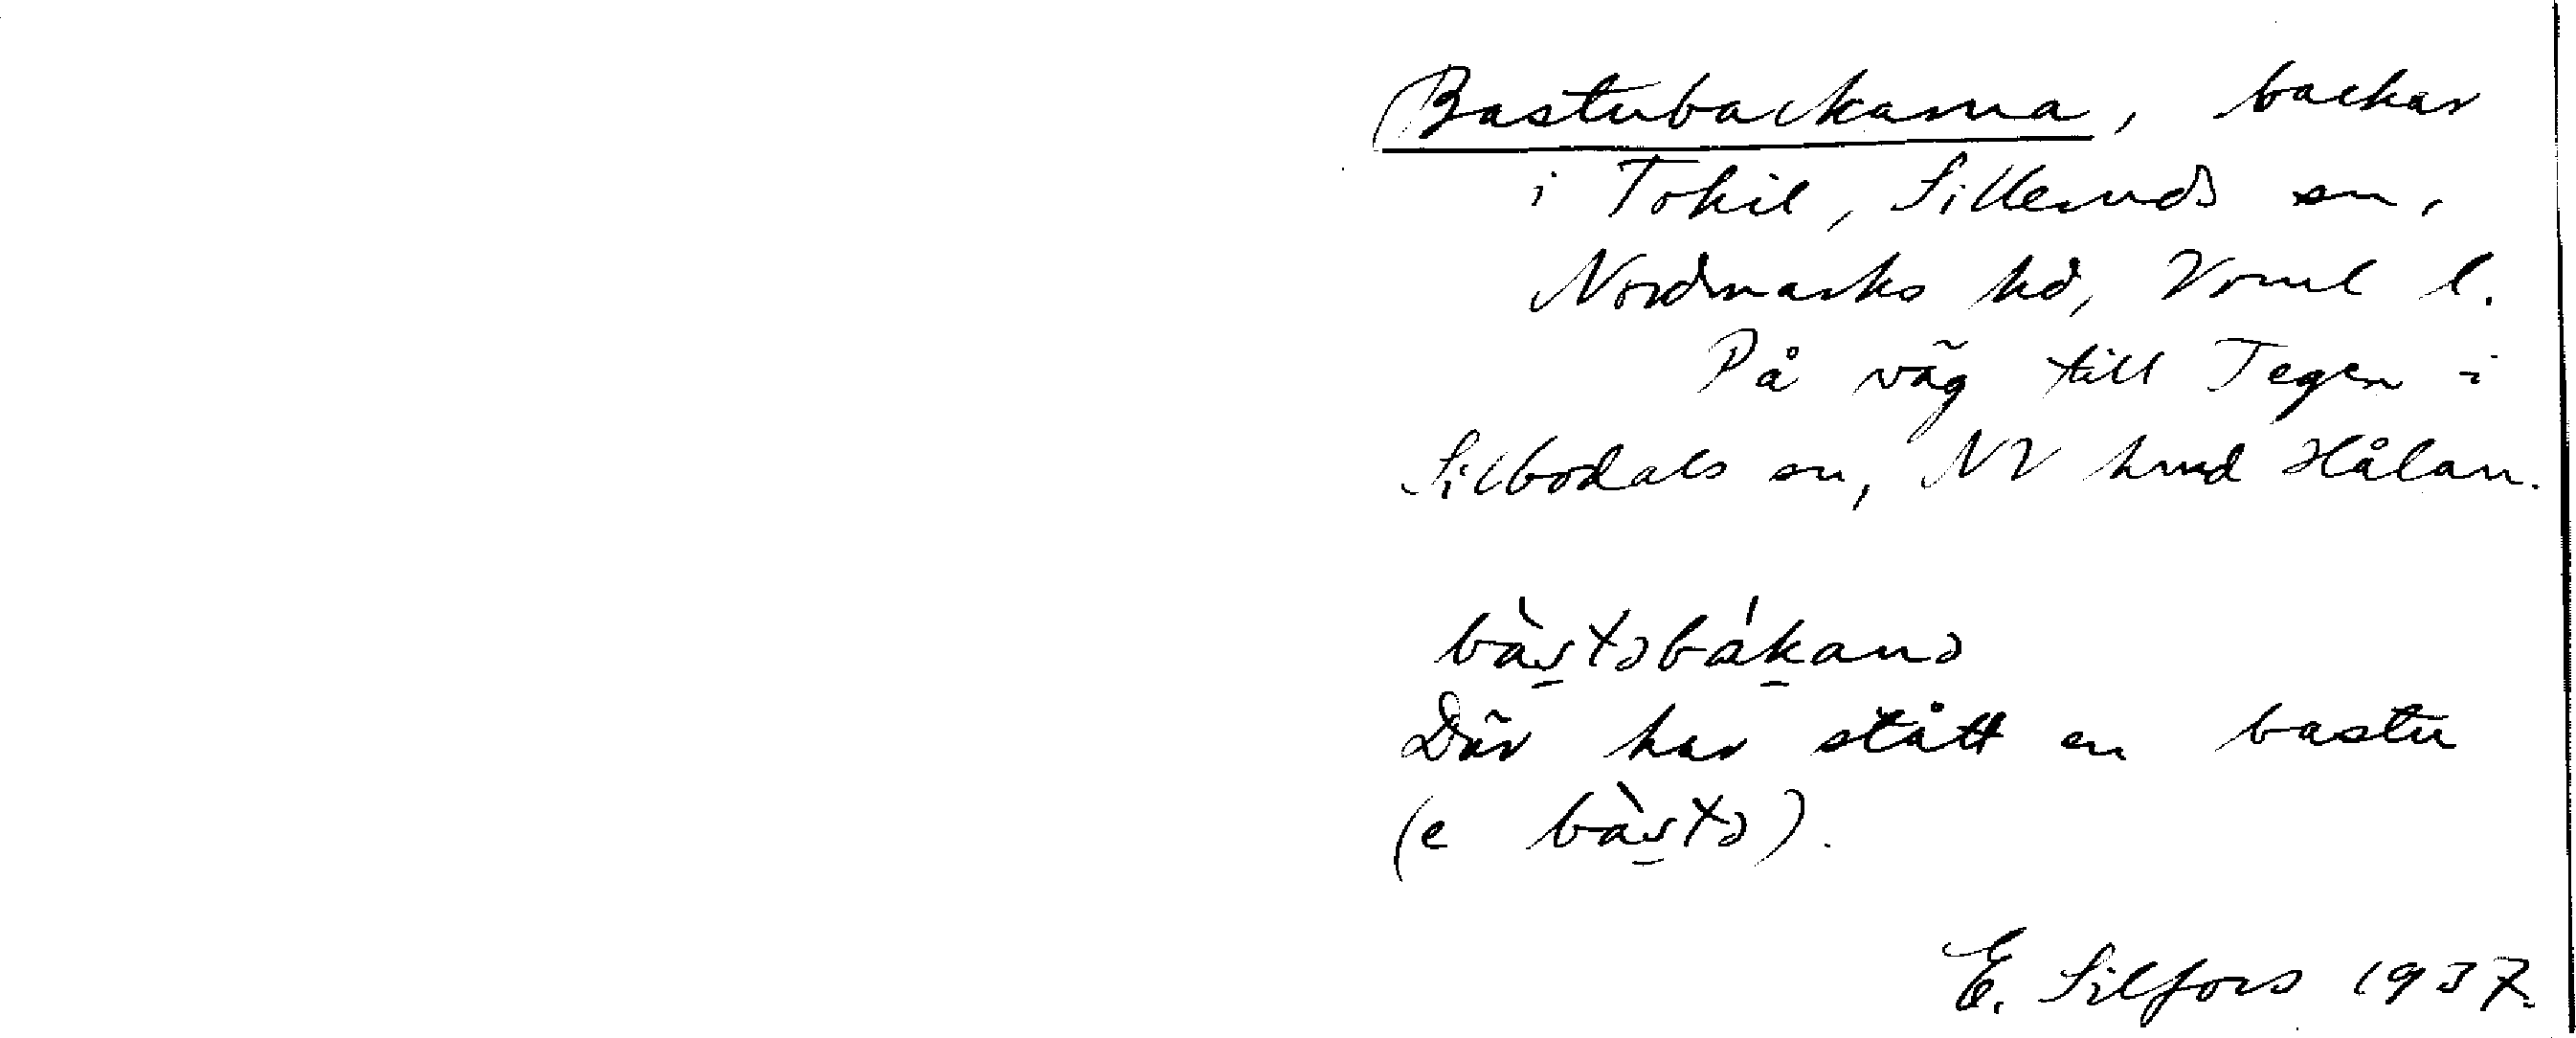 Bastubackarna, backar
i Tokil, Silleruds sn,
Nordmarks hd, Vrml l.
På väg till Tegen i
Silbodals sn, NV Hålan.
bàstəbákanə
Där har stått en bastu
(e bàstə).
E. Silfors 1937.